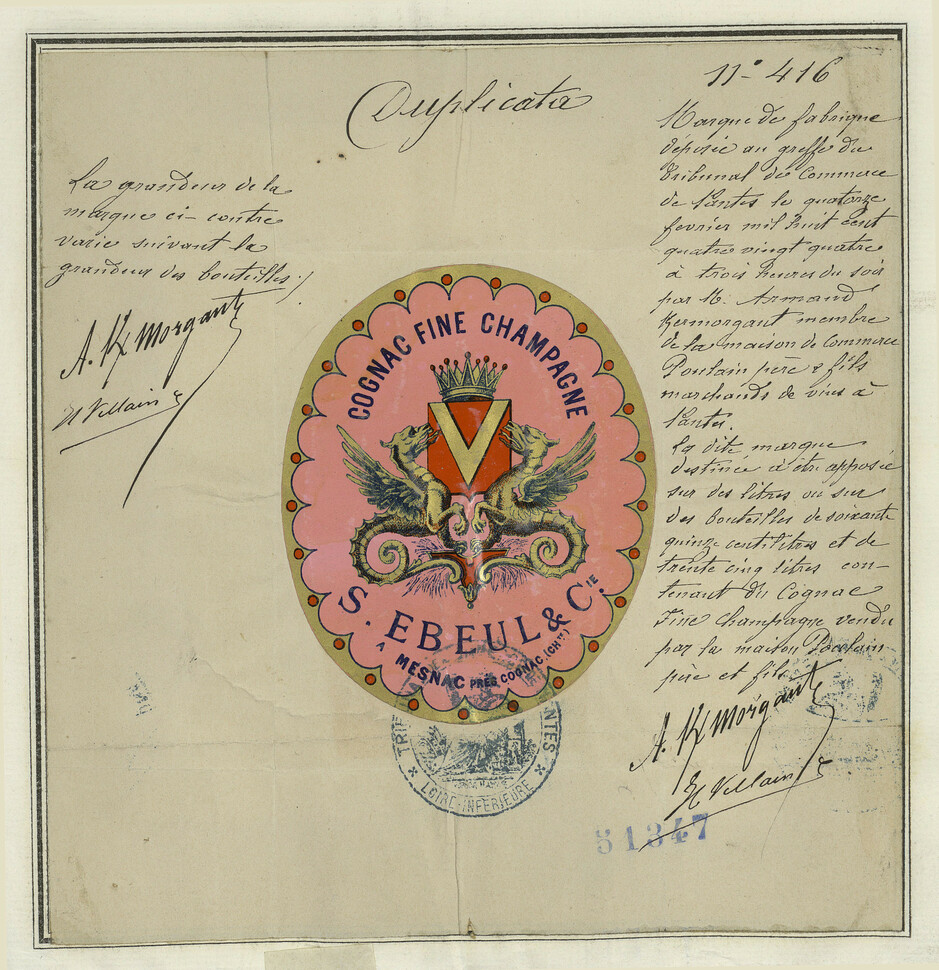 Duplicata
La grandeur de la
marque ci-contre
varie suivant la
grandeur des bouteilles
A. Kermorgant
H Villain
COGNAC FINE CHAMPAGNE
V
S. EBEUL & Cie.
A MESNAC PRÈS COGNAC (CHte)
NTES
LOIRE-INFÉRIEURE
N° 416
Marque de fabrique
déposée au greffe du
Tribunal de Commerce
de Nantes le quatorze
février mil huit cent
quatre vingt quatre
à trois heures du soir
par M. Armand
Kermorgant membre
de la maison de Commerce
Poulain père & fils
marchands de vins à
Nantes.
La dite marque
destinée à être apposée
sur des litres ou sur
des bouteilles de soixante
quinze centilitres et de
trente cinq litres con-
tenant du Cognac
Fine Champagne vendu
par la maison Poulain
père et fils
A. Kermorgant
H Villain
51347